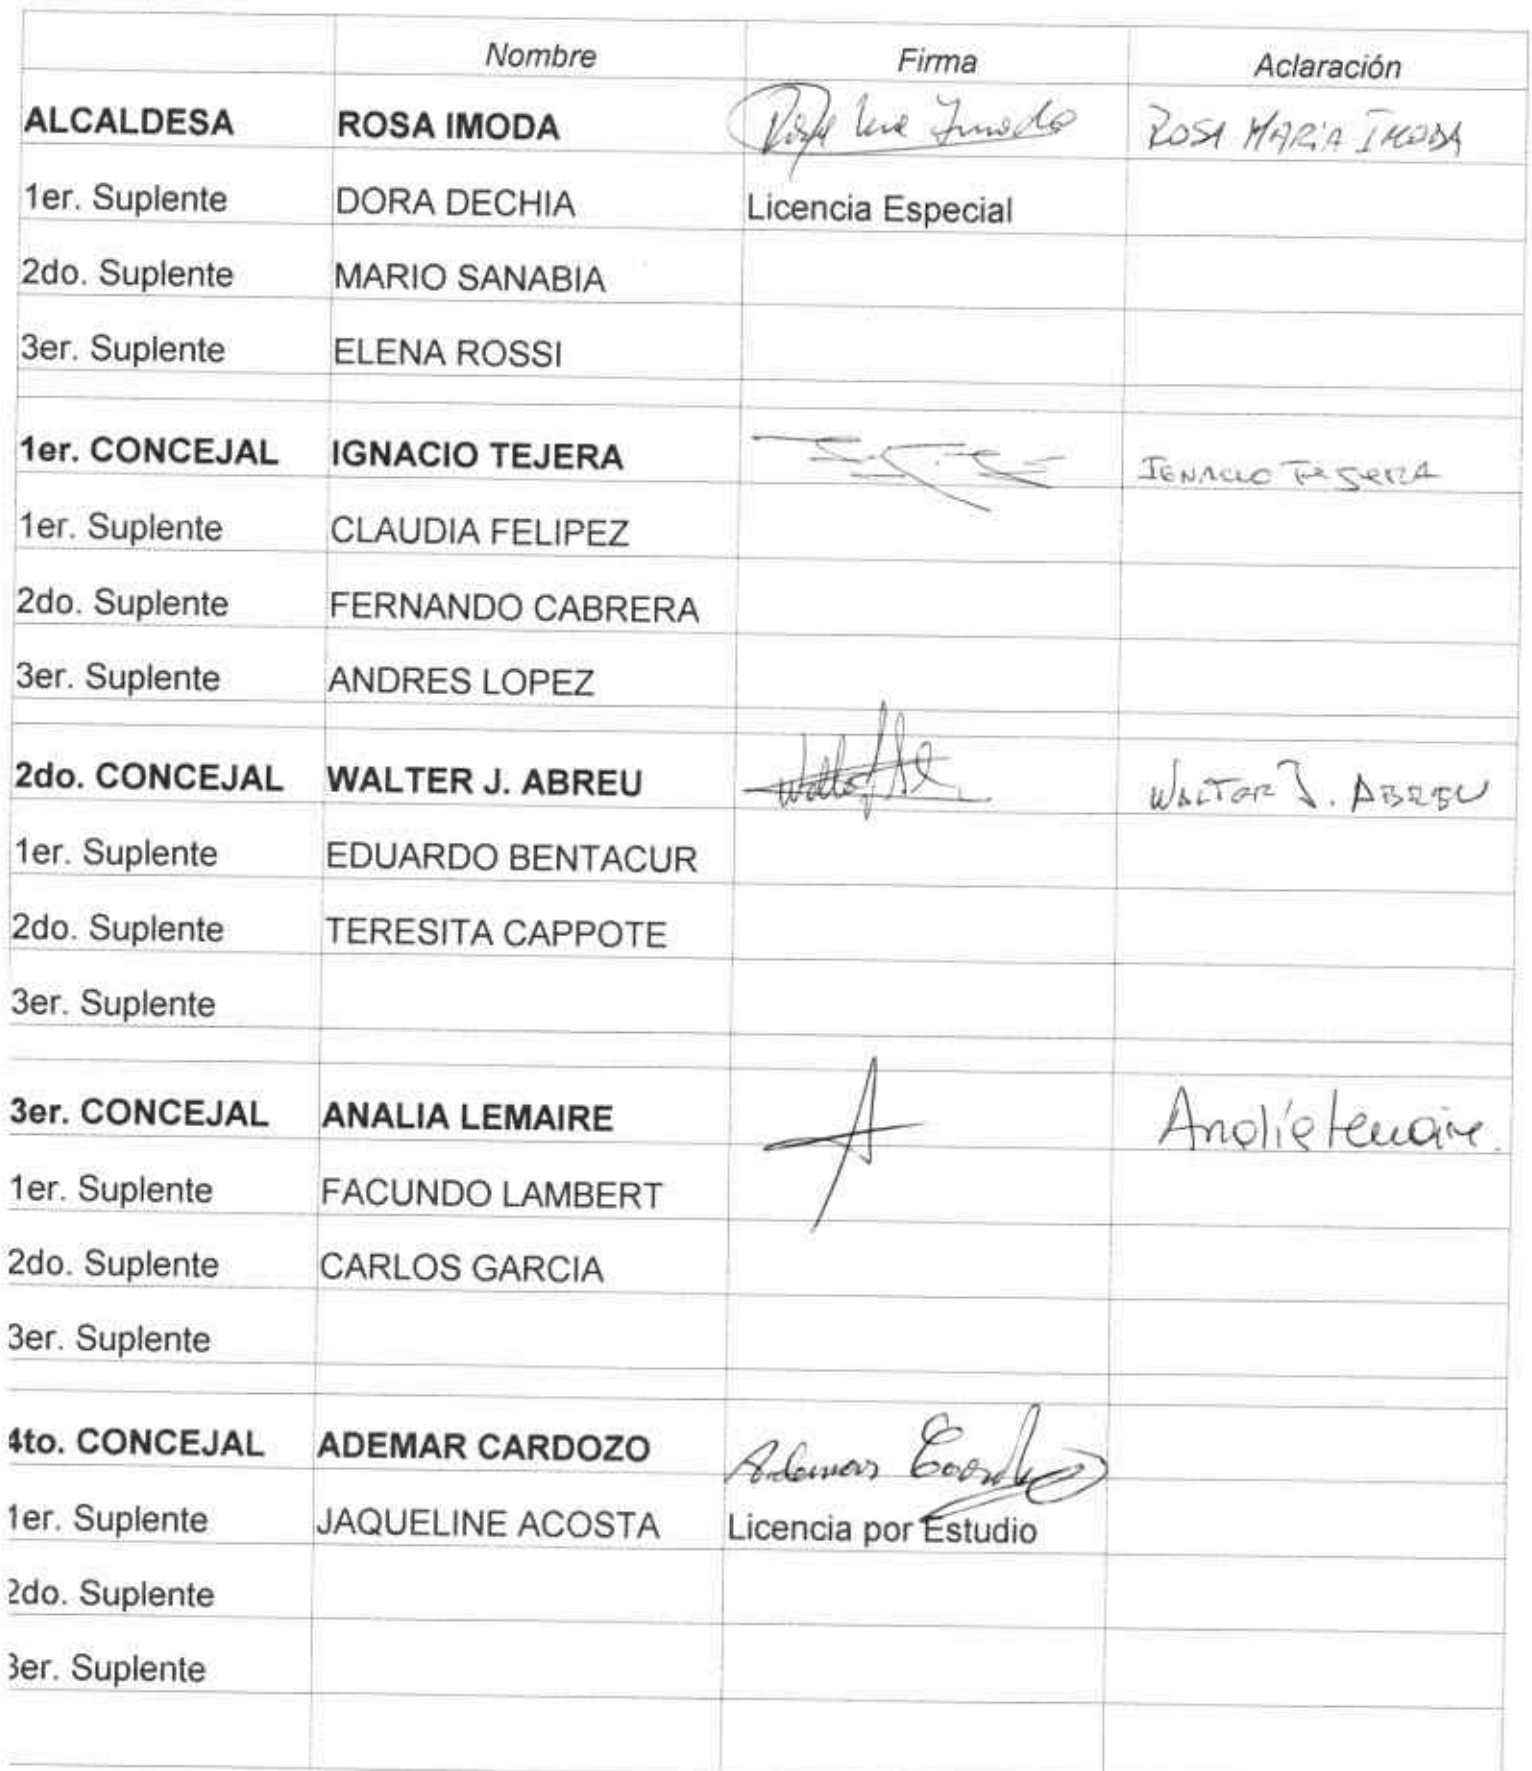 Nombre Firma Aclaración
ALCALDESA ROSA IMODA Rosa Ma Imoda ROSA MARíA IMODA
1er. Suplente DORA DECHIA Licencia Especial
2do. Suplente MARIO SANABIA
3er. Suplente ELENA ROSSI
1er. CONCEJAL IGNACIO TEJERA IGNACIO TEJERA
1er. Suplente CLAUDIA FELIPEZ
2do. Suplente FERNANDO CABRERA
3er. Suplente ANDRES LOPEZ
2do. CONCEJAL WALTER J. ABREU WALTER J. ABREU
1er. Suplente EDUARDO BENTACUR
2do. Suplente TERESITA CAPPOTE
3er. Suplente
3er. CONCEJAL ANALIA LEMAIRE A Analía Lemaire.
1er. Suplente FACUNDO LAMBERT
2do. Suplente CARLOS GARCIA
3er. Suplente
4to. CONCEJAL ADEMAR CARDOZO Ademar Cardozo
1er. Suplente JAQUELINE ACOSTA Licencia por Estudio
2do. Suplente
3er. Suplente